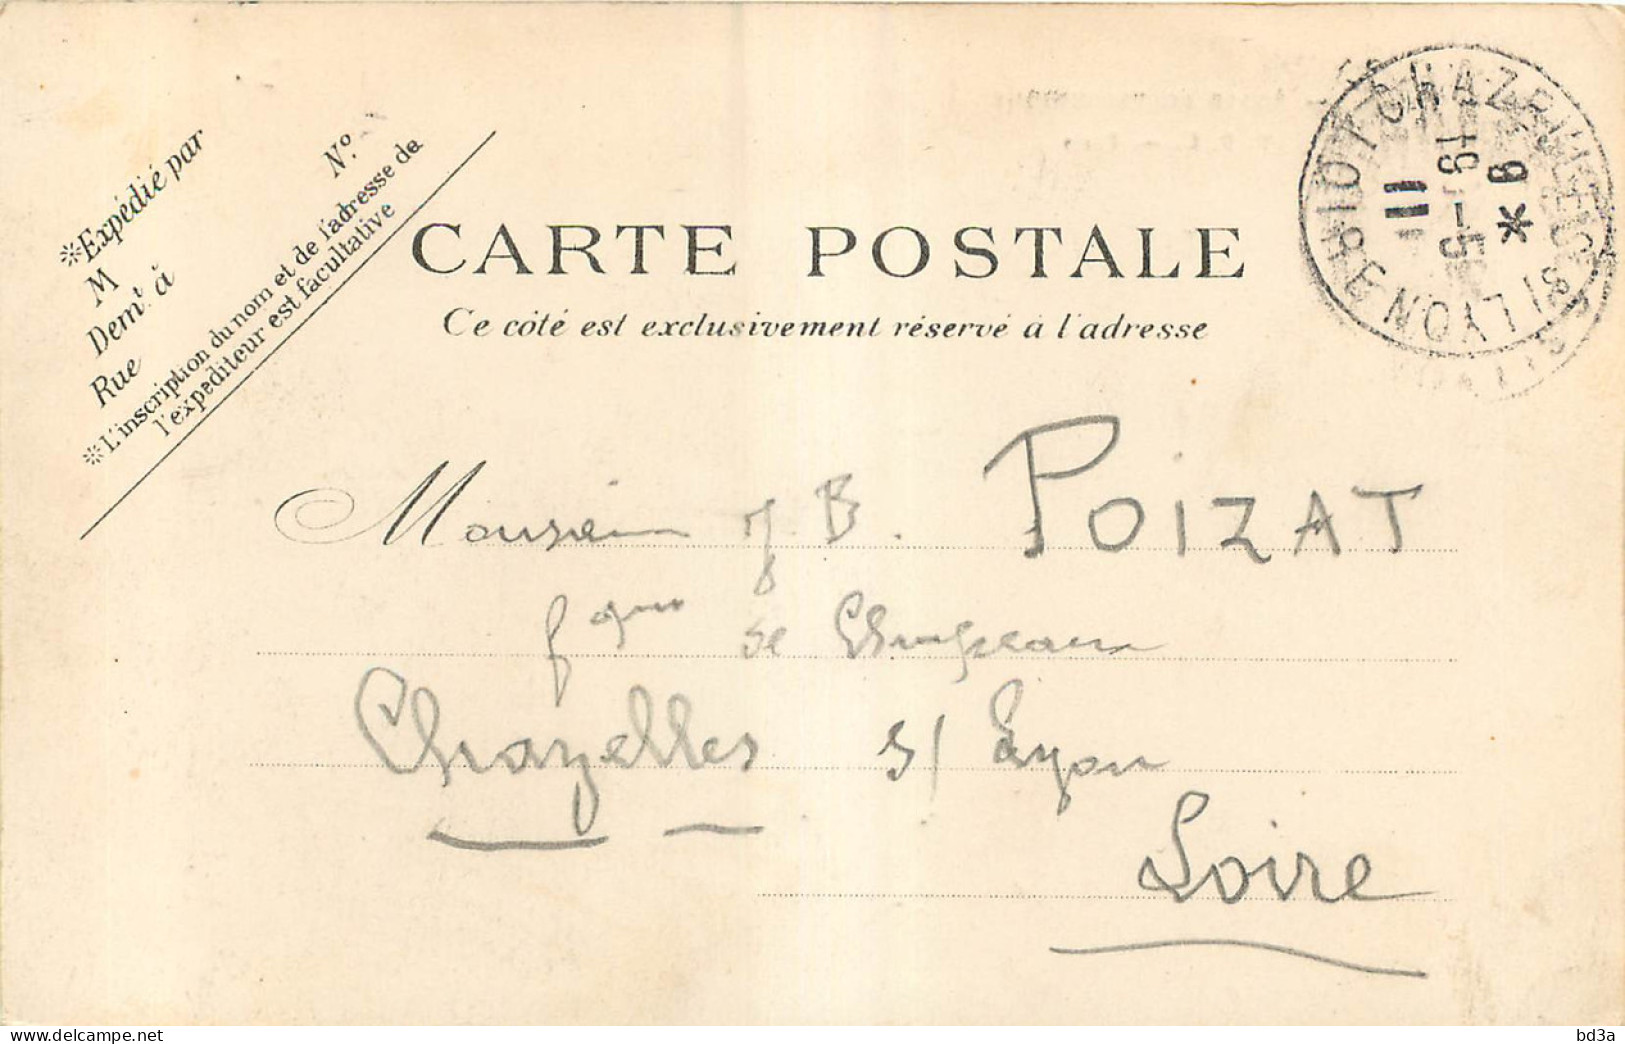 ※Expédié par
M
Demt à
Rue
N.º
※L'inscription du nom et de l'adresse de
l'expéditeur est facultative
CARTE POSTALE
Ce côté est exclusivement réservé à l'adresse
11
19 -5
9
*
Monsieur J. B. POIZAT
fque de Chapeaux
Chazelles s/ Lyon
Loire
delcampe.net
bd3a